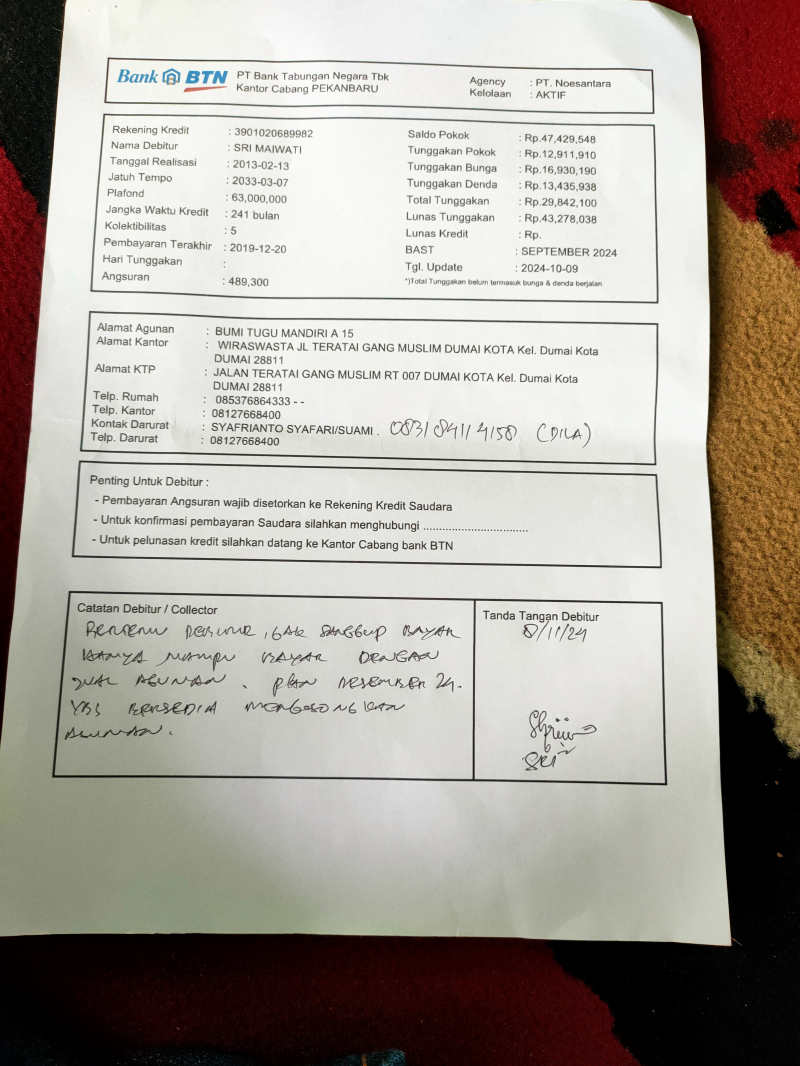 Bank BTN PT Bank Tabungan Negara Tbk
Kantor Cabang PEKANBARU
Agency : PT. Noesantara
Kelolaan : AKTIF
Rekening Kredit : 3901020689982
Nama Debitur : SRI MAIWATI
Tanggal Realisasi : 2013-02-13
Jatuh Tempo : 2033-03-07
Plafond : 63,000,000
Jangka Waktu Kredit : 241 bulan
Kolektibilitas : 5
Pembayaran Terakhir : 2019-12-20
Hari Tunggakan :
Angsuran : 489,300
Saldo Pokok : Rp.47,429,548
Tunggakan Pokok : Rp.12,911,910
Tunggakan Bunga : Rp.16,930,190
Tunggakan Denda : Rp.13,435,938
Total Tunggakan : Rp.29,842,100
Lunas Tunggakan : Rp.43,278,038
Lunas Kredit : Rp.
BAST : SEPTEMBER 2024
Tgl. Update : 2024-10-09
*)Total Tunggakan belum termasuk bunga & denda berjalan
Alamat Agunan : BUMI TUGU MANDIRI A 15
Alamat Kantor : WIRASWASTA JL TERATAI GANG MUSLIM DUMAI KOTA Kel. Dumai Kota
DUMAI 28811
Alamat KTP : JALAN TERATAI GANG MUSLIM RT 007 DUMAI KOTA Kel. Dumai Kota
DUMAI 28811
Telp. Rumah : 085376864333 - -
Telp. Kantor : 08127668400
Kontak Darurat : SYAFRIANTO SYAFARI/SUAMI . 083184114158 (DILA)
Telp. Darurat : 08127668400
Penting Untuk Debitur :
- Pembayaran Angsuran wajib disetorkan ke Rekening Kredit Saudara
- Untuk konfirmasi pembayaran Saudara silahkan menghubungi ................................
- Untuk pelunasan kredit silahkan datang ke Kantor Cabang bank BTN
Catatan Debitur / Collector
BERTEMU DEBITUR, GAK SANGGUP BAYAR
HANYA MAMPU BAYAR DENGAN
JUAL AGUNAN . PLAN DESEMBER 24.
YBS BERSEDIA MENGOSONGKAN
AGUNAN.
Tanda Tangan Debitur
8/11/24
SRI